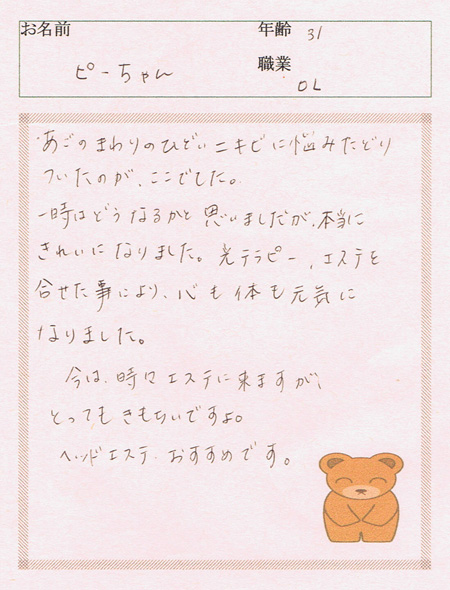 お名前
ピーちゃん
年齢 31
職業
OL
あごのまわりのひどいニキビに悩みたどり
ついたのが、ここでした。
一時はどうなるかと思いましたが、本当に
きれいになりました。光テラピー、エステを
合せた事により、心も体も元気に
なりました。
今は、時々エステに来ますが、
とってもきもちいですよ。
ヘッドエステ おすすめです。